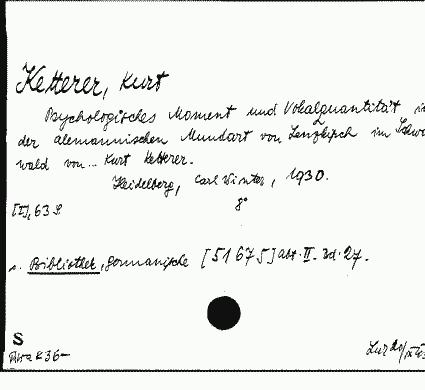 Ketterer, Kurt
Psychologisches Moment und Vokalquantität i
der alemannischen Mundart von Lenzkirch im Schwa
wald von .. Kurt Ketterer.
Heidelberg, Carl Winter, 1930.
[I], 63 S. 8°
s. Bibliothek, germanische [51675] abt. II. Bd. 27.
S
K36-